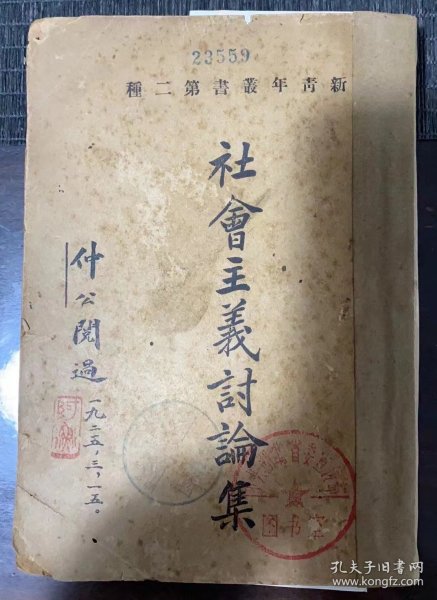 23559
種二第書叢年青新
社會主義討論集
仲公閱過
一九二五，三，一五。
孔夫子旧书网
www.kongfz.com